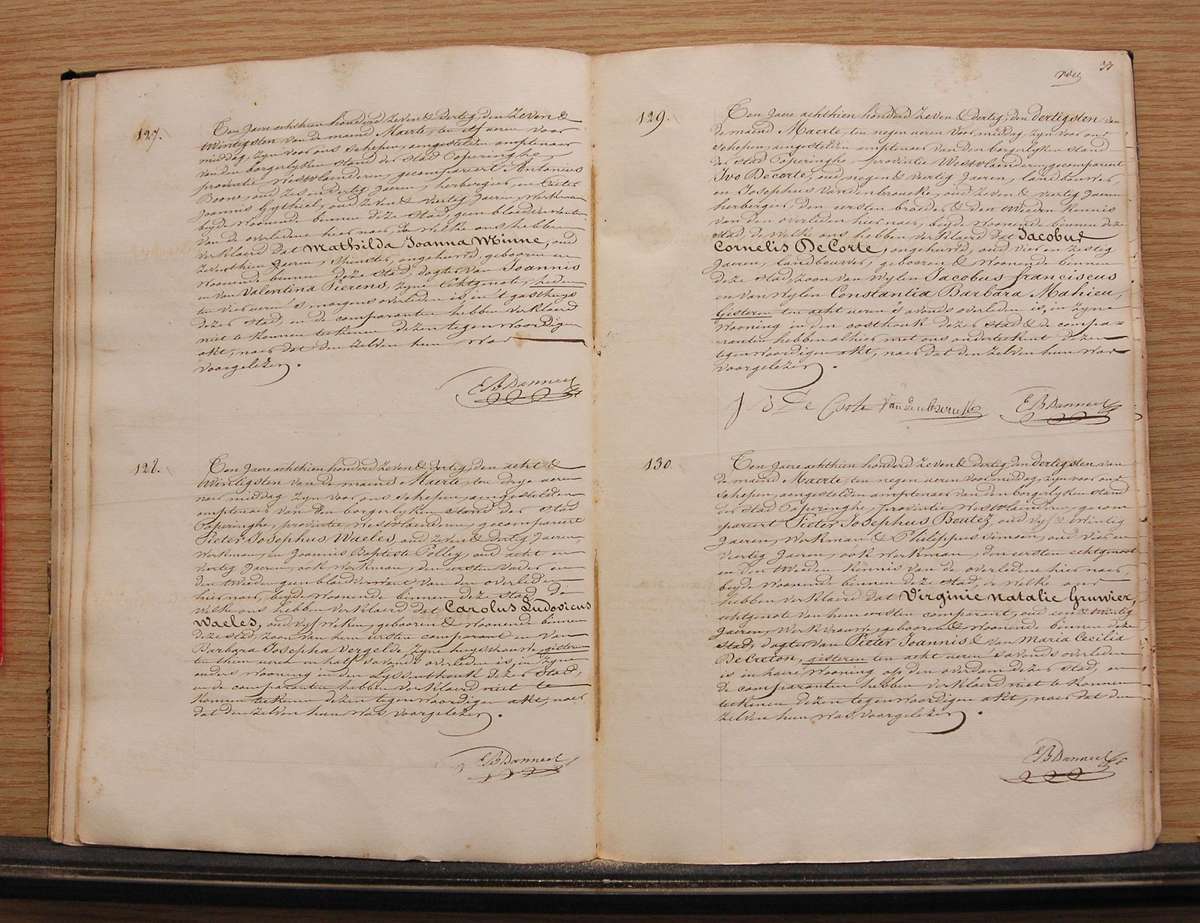 127.
Ten Jaere achthien honderd zeven & dertig, den zeven &
twintigsten van de maend Maerte, ten elf ueren voor
middag, zyn voor ons Schepen, aengestelden amptenaer
van den borgerlyken stand der stad Poperinghe,
provintie Westvlaenderen, gecompareert Antonius
Boone, oud zes en dertig Jaeren, herbergier, en Pieter
Joannis Gythiel, oud zeven & veertig Jaeren, Werkman
beyde Woonende binnen deze Stad, geen bloedverwanten
van de overledene hier naer, de welke ons hebben
verklaerd dat Mathilda Joanna Minne, oud
zeventhien Jaeren, , ongehuwd, gebooren en
Woonende binnen deze stad, dogter van Joannis
en van Valentina Pierens, zyne Echtgenote, heden
ten vier uer 's morgens overleden is in 't gasthuys
dezer Stad, en de comparanten hebben verklaerd
niet te konnen teekenen dezen tegenwoordigen
akt, naer dat den zelven hun was
voorgelezen.
E B Danneel
128.
Ten Jaere achthien honderd zeven & dertig, den acht &
twintigsten van de maend Maerte, ten drye ueren
naer middag zyn voor ons Schepen aengestelden
amptenaer van den borgerlyken stand der Stad
Poperinghe, provintie Westvlaenderen, gecompareert
Pieter Josephus Waeles, oud zeven & dertig Jaeren,
Werkman, en Joannis Baptiste Polley, oud acht en
veertig Jaeren, ook Werkman, den eersten vader en
den tweeden geen bloedverwant van den overleden
hier naer, beyde Woonende binnen deze stad, de
welke ons hebben verklaerd dat Carolus Ludovicus
Waeles, oud vyf weken, gebooren & Woonende binnen
deze stad, zoon van hun eersten comparant en van
Barbara Josepha Vergelde, zyne huysvrouw, gisteren
ten thien ueren en half 's avends overleden is, in zyne
ouders Wooning in den dezer Stad,
en de comparanten hebben verklaerd niet te
konnen teekenen dezen tegenwoordigen akt, naer
dat den zelven hun was voorgelezen.
E B Danneel
37
129.
Ten Jaere achthien honderd zeven & dertig, den dertigsten van
de maend Maerte, ten negen ueren voor middag, zyn voor ons
Schepen, aengestelden amptenaer van den borgerlyken stand
der stad Poperinghe, provintie Westvlaenderen, gecompareert
Ivo De Corte, oud negen & vertig Jaeren, landbouwer
en Josephus Vandenbroucke, oud zeven & vertig Jaeren
herberger, den eersten broeder & den tweeden kennis
van den overleden hier naer, beyde Woonende binnen deze
stad, de welke ons hebben verklaerd dat Jacobus
Cornelis De Corte, ongehuwd, oud vier en zestig
Jaeren, landbouwer, gebooren & Woonende binnen
deze Stad, zoon van wylen Jacobus franciscus
en van wylen Constantia Barbara Mahieu,
gisteren ten acht ueren 's avends overleden is, in zyne
Wooning in den oosthoek dezer Stad & de compa-
ranten hebben alhier met ons onderteekent dezen
tegenwoordigen akt, naer dat den zelven hun was
voorgelezen.
De Corte Vandenbroucke E B Danneel
130.
Ten Jaere achthien honderd zeven & dertig, den dertigsten van
de maend Maerte, ten negen ueren voor middag, zyn voor ons
Schepen, aengestelden amptenaer van den borgerlyken stand
der stad Poperinghe, provintie Westvlaenderen, gecom-
pareert Pieter Josephus Boutez, oud vyf & twintig
Jaeren, Werkman & Philippus Simoen, oud vier en
veertig Jaeren, ook Werkman, den eersten echtgenoot
en den tweeden kennis van de overledene hier naer,
beyde Woonende binnen deze stad, de welke ons
hebben verklaerd dat Virginie Natalie Gruwier,
echtgenote van hun eersten comparant, oud een & twintig
Jaeren, Werkvrouw, gebooren & Woonende binnen deze
stad, dogter van Pieter Joannis & van Maria Cecilia
De Creton, gisteren ten acht ueren 's avends overleden
is in haere Wooning op den dezer Stad en
de comparanten hebben verklaerd niet te konnen
teekenen dezen tegenwoordigen akt, naer dat den
zelven hun was voorgelezen.
E B Danneel